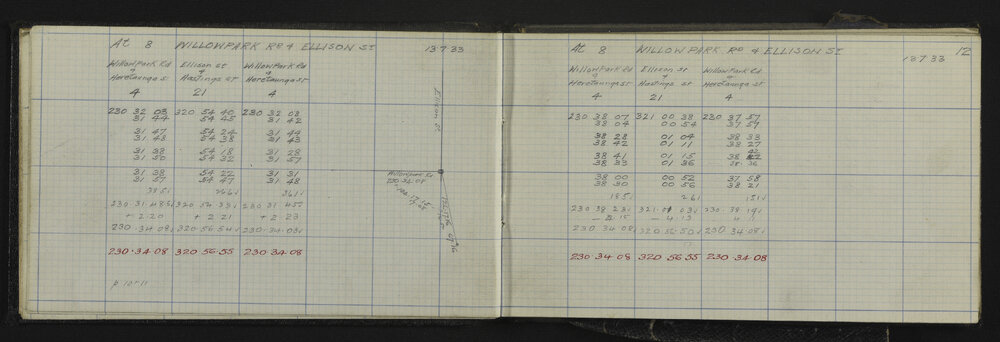 At 8 WILLOWPARK RD & ELLISON ST 13·7·33
WillowPark Rd Ellison St WillowPark Rd
& & &
Heretaunga St Hastings ST Heretaunga ST
4 21 4
230 32 03 320 54 40 230 32 03
31 44 54 45 31 42
31 47 54 24 31 44
31 43 54 38 31 43
31 38 54 18 31 28
31 50 54 32 31 57
31 38 54 22 31 31
31 57 54 47 31 48
385 266 361
230·31·48 320 54 33 230 31 45
+ 2·20 + 2 21 + 2·23
230·34·08 320·56·54 230·34·03
230·34·08 320·56·55 230·34·08
p 10+11
Ellison St
Willowpark Rd
230·34·08
At 8 WILLOW PARK RD & ELLISON ST 12
13 7 33
WillowPark Rd Ellison St WillowPark Rd
& & &
Heretaunga St Hastings ST Heretaunga St
4 21 4
230 38 07 321 00 38 230 37 57
38 04 00 54 37 59
38 28 01 04 38 33
38 42 01 11 38 27
38 41 01 15 38 42
38 33 01 36 38 36
38 00 00 52 37 58
38 30 00 56 38 21
185 261 151
230 38 23 321·01 03 230·38·19
– 4·15 – 4·13 4 11
230 34 08 320 56 50 230 34 08
230·34·08 320 56 55 230·34·08